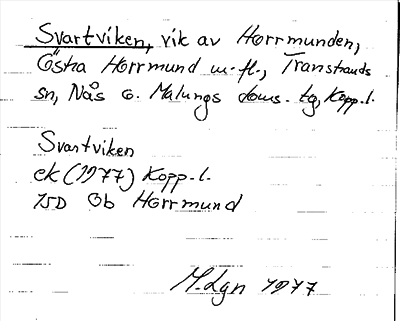 Svartviken, vik av Horrmunden,
Östra Horrmund m. fl., Transtrands
sn, Nås o. Malungs doms. tg, Kopp. l.
Svartviken
ek (1977) Kopp. l.
15D Ob Horrmund
M. Lgn 1977